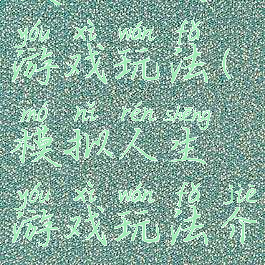 yóu xì wán fǎ
游戏玩法(
mó nǐ rén shēng
模拟人生
yóu xì wán fǎ jiè
游戏玩法介